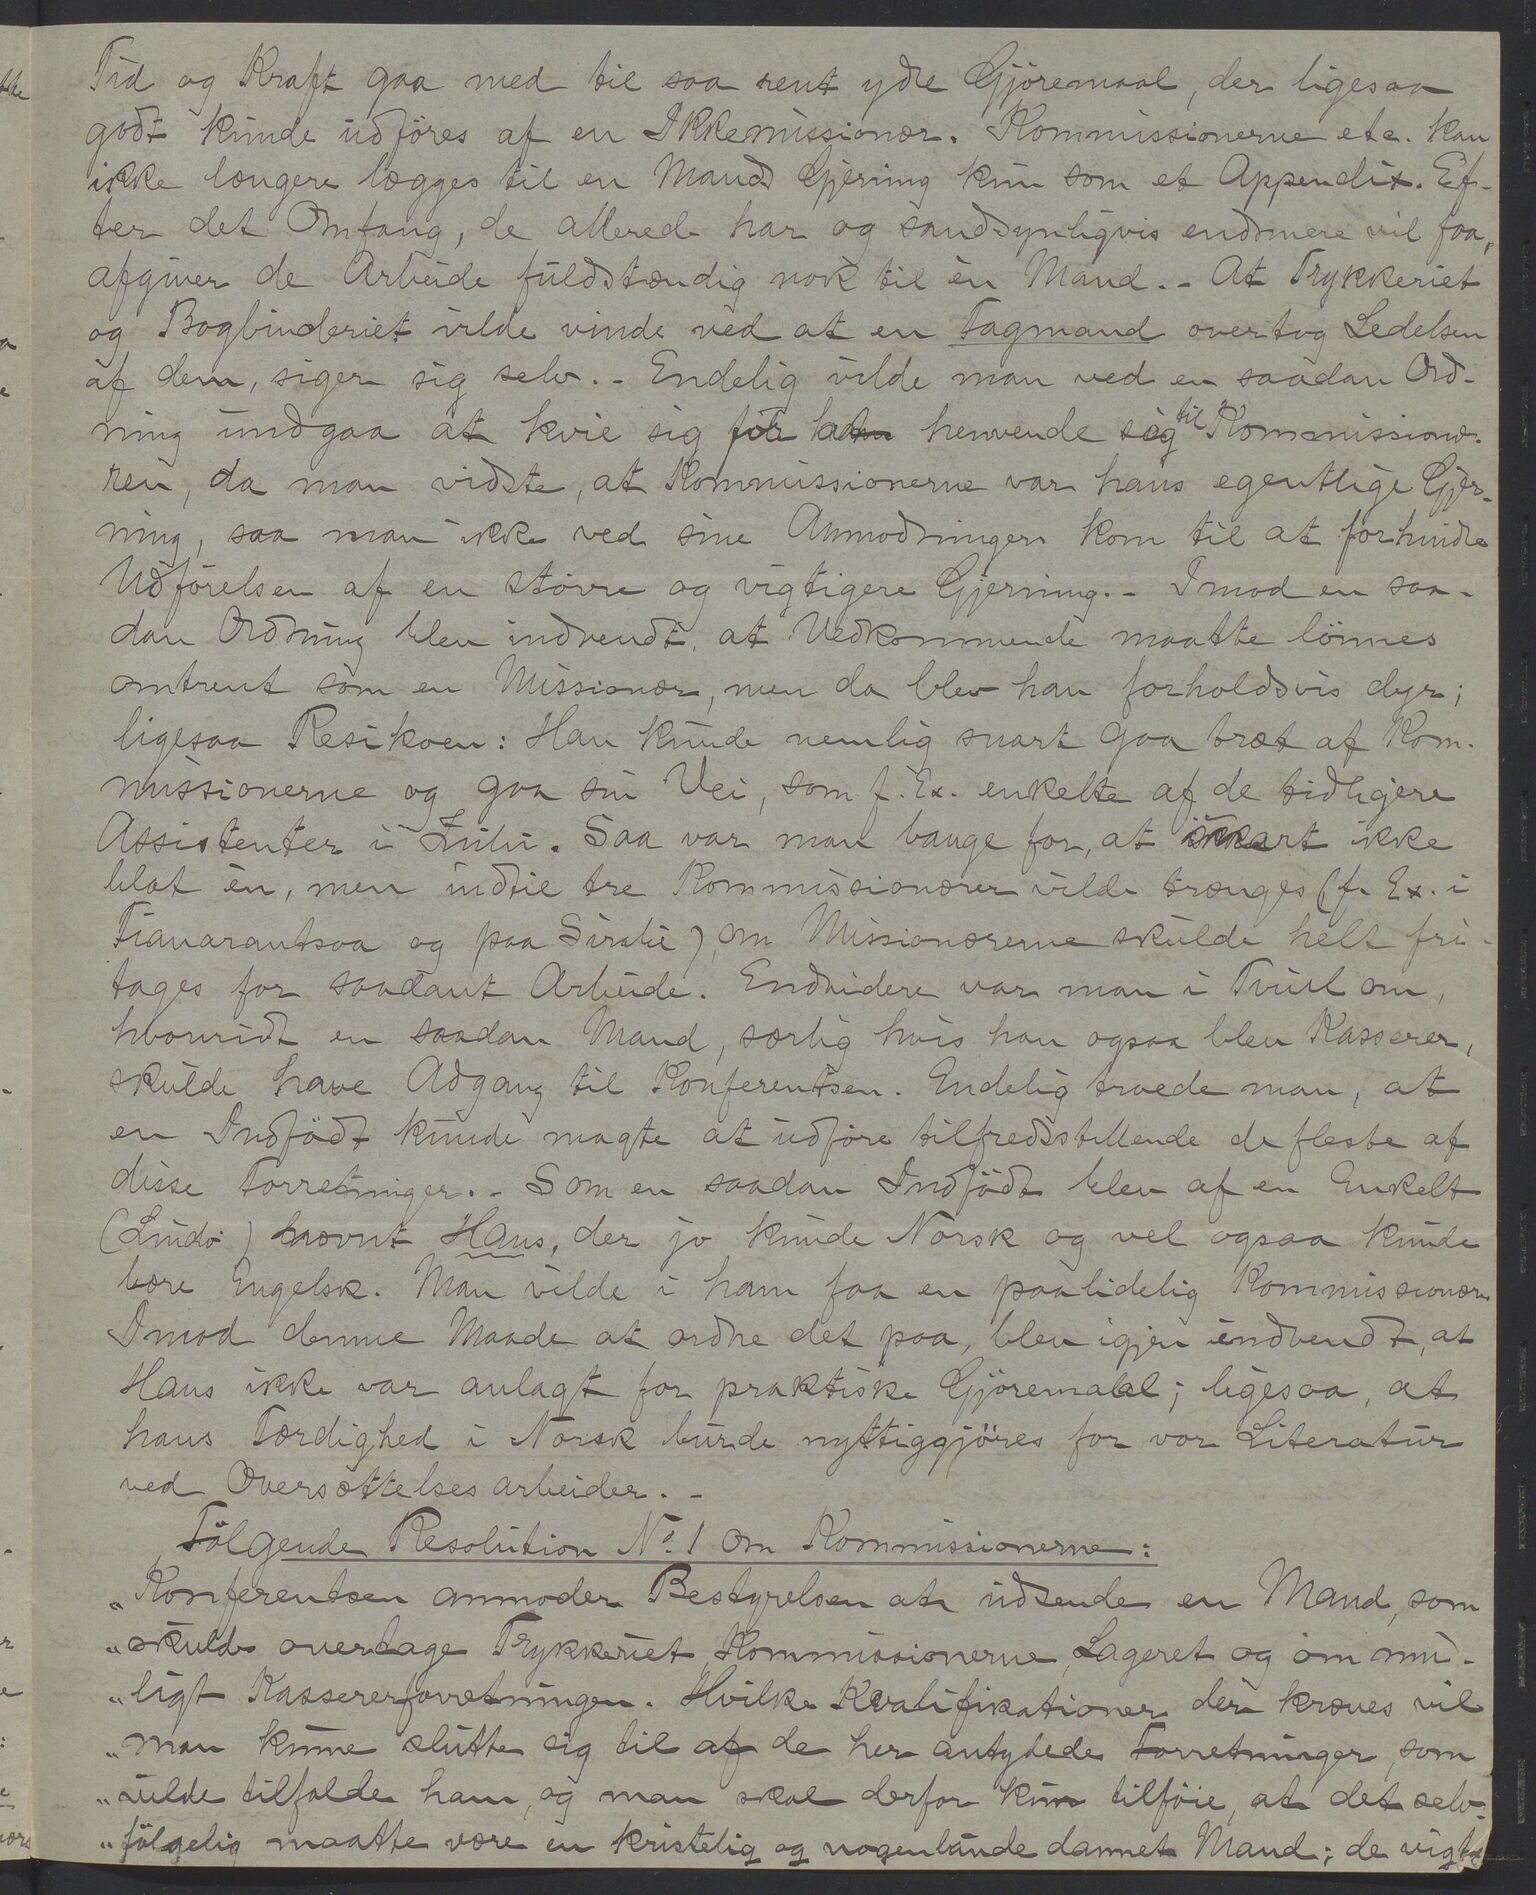 Tid og Kraft gaa med til saa rent ydre Gjöremaal, der ligesaa
godt kunde udföres af en Ikkemissionær. Kommissionerne etc. kan
ikke længere lægges til en Mands Gjerning kun som et Appendix. Ef-
ter det Omfang, de allerede har og sandsynligvis endmere vil faa,
afgiver de Arbeide fuldstændig nok til èn Mand. - At Trykkeriet
og Bogbinderiet vilde vinde ved at en Fagmand overtog Ledelsen
af dem, siger sig selv. - Endelig vilde man ved en saadan Ord-
ning undgaa at kvie sig for at henvende sig til Kommissionæ-
ren, da man vidste, at Kommissionerne var hans egentlige Gjer-
ning, saa man ikke ved sine Anmodninger kom til at forhindre
Udförelsen af en större og vigtigere Gjerning. - Imod en saa-
dan Ordning blev indvendt, at Vedkommende maatte lönnes
omtrent som en Missionær, men da blev han forholdsvis dyr;
ligesaa Resikoen: Han kunde nemlig snart gaa træt af Kom-
missionerne og gaa sin Vei, som f. Ex. enkelte af de tidligere
Assistenter i Zulu. Saa var man bange for, at snart ikke
blot èn, men indtil tre Kommissionærer vilde trænges (f. Ex. i
Fianarantsoa og paa Sirabe), om Missionærerne skulde helt fri-
tages for saadant Arbeide. Endvidere var man i Tvivl om,
hvorvidt en saadan Mand, særlig hvis han ogsaa blev Kasserer,
skulde have Adgang til Konferentsen. Endelig troede man, at
en Indfödt kunde magte at udföre tilfredsstillende de fleste af
disse Forretninger. - Som en saadan Indfödt blev af en Enkelt
(Lindö) nævnt Hans, der jo kunde Norsk og vel ogsaa kunde
lære Engelsk. Man vilde i ham faa en paalidelig Kommissionær.
Imod denne Maade at ordne det paa, blev igjen indvendt, at
Hans ikke var anlagt for praktiske Gjöremaal; ligesaa, at
hans Færdighed i Norsk burde nyttiggjöres for vor Literatur
ved Oversættelsesarbeider. -
Fölgende Resolution No. 1 om Kommissionerne:
"Konferentsen anmoder Bestyrelsen at udsende en Mand, som
"skulde overtage Trykkeriet, Kommissionerne, Lageret og om mu-
"ligt Kassererforretningen. Hvilke Kvalifikationer der kræves vil
"man kunne slutte sig til af de her antydede Forretninger, som
"vilde tilfalde ham, og man skal derfor kun tilföie, at det selv-
"fölgelig maatte være en kristelig og nogenlunde dannet Mand; de vigt